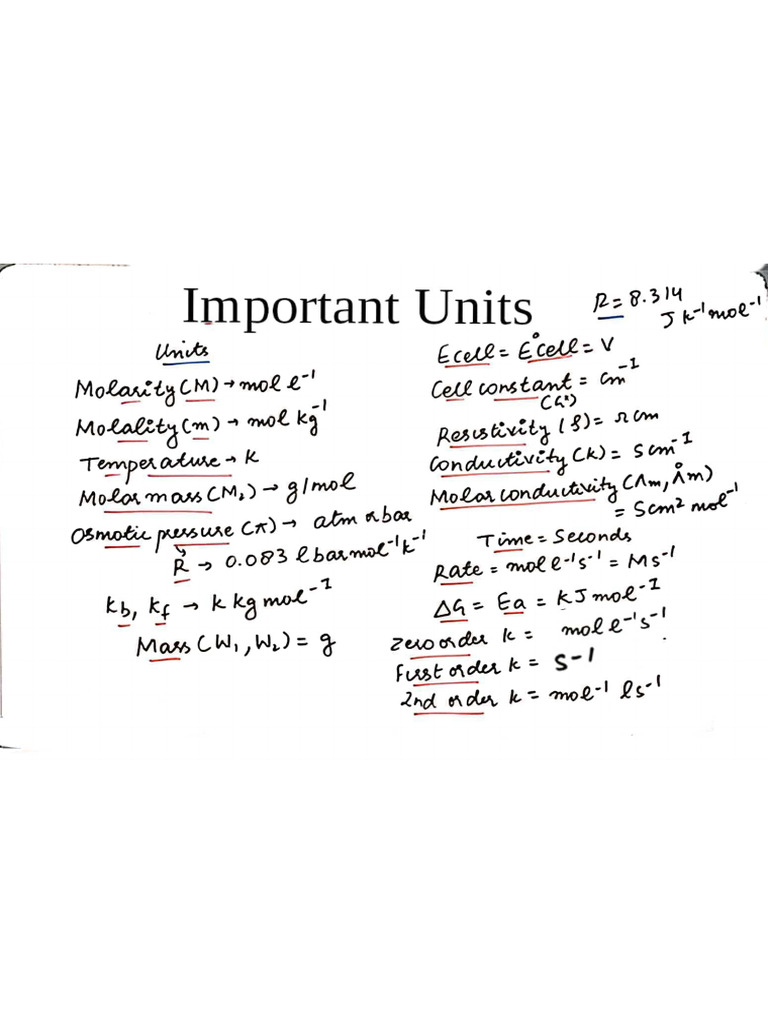 Important Units
R = 8.314
J k⁻¹ mol⁻¹
Units
Molarity (M) → mol l⁻¹
Molality (m) → mol kg⁻¹
Temperature → k
Molar mass (M₂) → g/mol
Osmotic pressure (π) → atm or bar
R → 0.083 l bar mol⁻¹ k⁻¹
kb, kf → k kg mol⁻¹
Mass (W₁, W₂) = g
Ecell = E°cell = V
Cell constant = cm⁻¹
(G*)
Resistivity (ρ) = Ω cm
Conductivity (k) = S cm⁻¹
Molar conductivity (Λm, Λ°m)
= S cm² mol⁻¹
Time = Seconds
Rate = mol l⁻¹ s⁻¹ = M s⁻¹
ΔG = Ea = kJ mol⁻¹
Zero order k = mol l⁻¹ s⁻¹
First order k = s-1
2nd order k = mol⁻¹ l s⁻¹